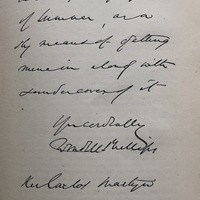 of summer, as a
by means of getting
mine in along with
of it
Yrs cordially
Wendell Phillips
Rev Carlos Martyn